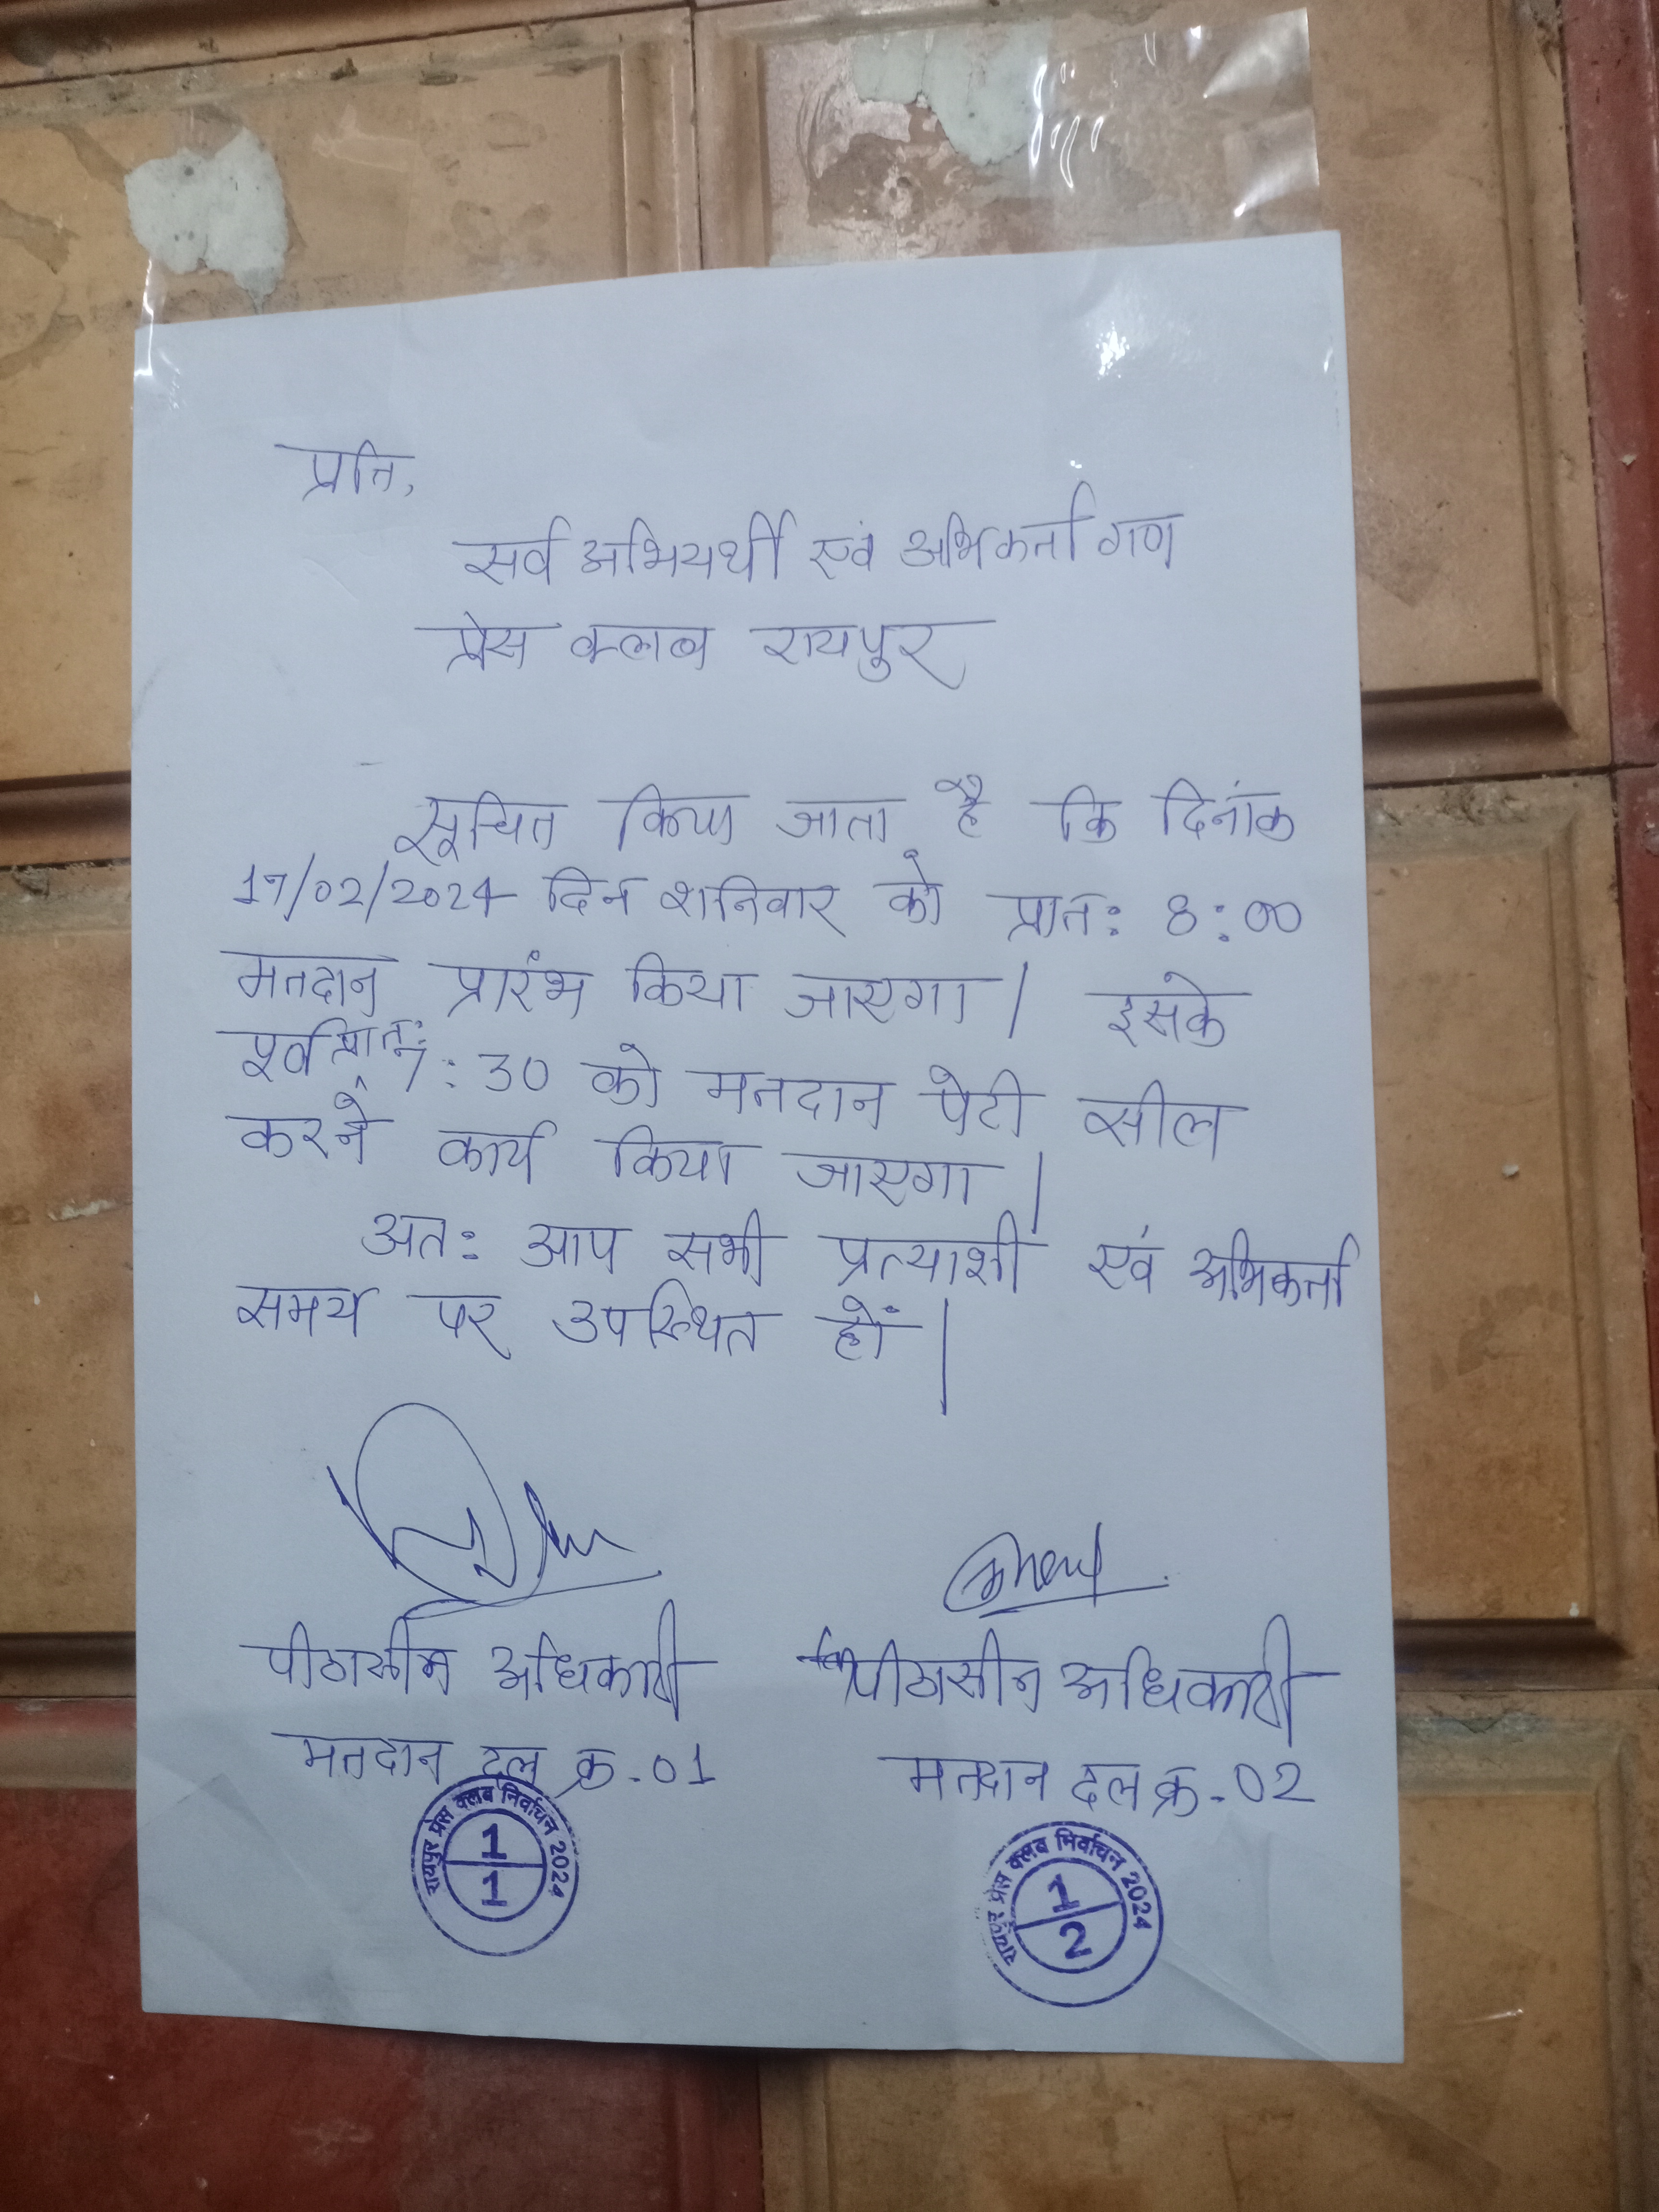 प्रति,
सर्व अभियर्थी एवं अभिकर्ता गण
प्रेस क्लब रायपुर
सूचित किया जाता है कि दिनांक
17/02/2024 दिन शनिवार को प्रातः 8:00
मतदान प्रारंभ किया जाएगा। इसके
पूर्व प्रातः 7:30 को मतदान पेटी सील
करने कार्य किया जाएगा।
अतः आप सभी प्रत्याशी एवं अभिकर्ता
समय पर उपस्थित हों।
पीठासीन अधिकारी पीठासीन अधिकारी
मतदान दल क्र.01 मतदान दल क्र.-02
रायपुर प्रेस क्लब निर्वाचन 2024
1
1
रायपुर प्रेस क्लब निर्वाचन 2024
1
2